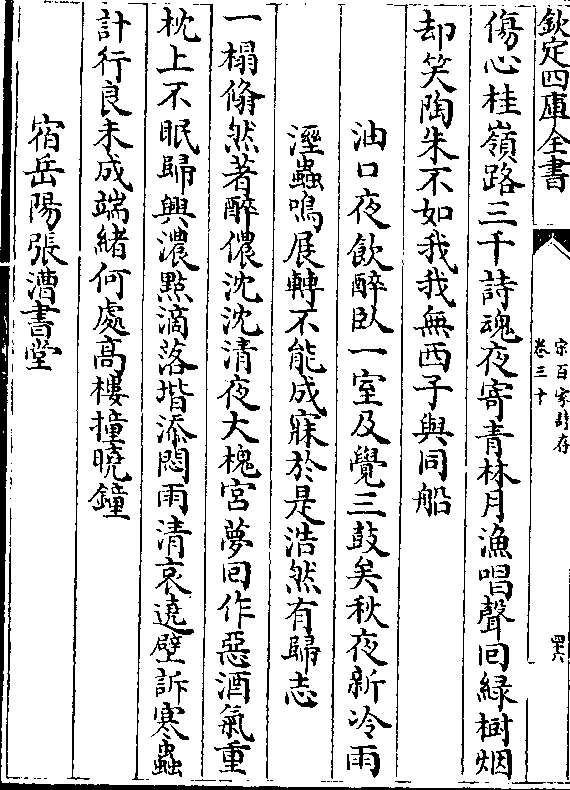 欽定四庫全書
宋百家詩存
卷三十
四六
傷心桂嶺路三千詩魂夜寄青林月漁唱聲回緑樹烟
却笑陶朱不如我我無西子與同船
油口夜飲醉卧一室及覺三鼓矣秋夜新冷雨
溼蟲鳴展轉不能成寐於是浩然有歸志
一榻翛然著醉儂沈沈清夜大槐宮夢回作惡酒氣重
枕上不眠歸興濃點滴落堦添悶雨清哀遶壁訴寒蟲
計行良未成端緒何處髙樓撞曉鐘
宿岳陽張漕書堂